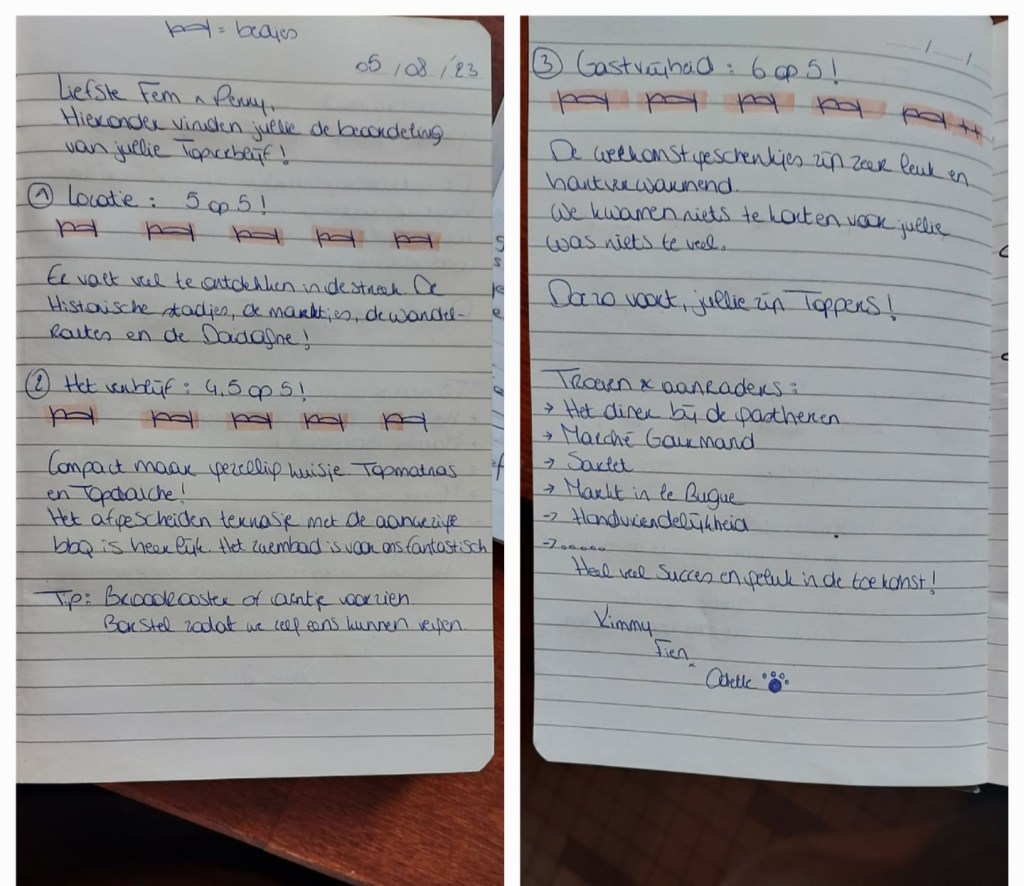 = bedjes
05/08/'23
Liefste Fem & Penny,
Hieronder vinden jullie de beoordeling
van jullie Topverblijf!
1 Locatie: 5 op 5!
Er valt veel te ontdekken in de streek. De
Historische stadjes, de marktjes, de wandel-
Routes en de Dordogne!
2 Het verblijf: 4,5 op 5!
Compact maar gezellig huisje Topmatras
en Topdouche!
Het afgescheiden terrasje met de aanwezige
bbq is heerlijk. Het zwembad is voor ons fantastisch
Tip: Broodrooster of oventje voorzien
Borstel zodat we zelf eens kunnen vegen.
3 Gastvrijheid: 6 op 5!
++
De welkomstgeschenkjes zijn zeer leuk en
hartverwarmend.
We kwamen niets te korten voor jullie
was niets te veel.
Doe zo voort, jullie zijn Toppers!
Troeven & aanraders:
→ Het diner bij de partheren
→ Marché Gourmand
→ Sarlat
→ Markt in le Bugue
→ Hondvriendelijkheid
→ ......
Heel veel succes en geluk in de toekomst!
Kimmy
Fien
Odette